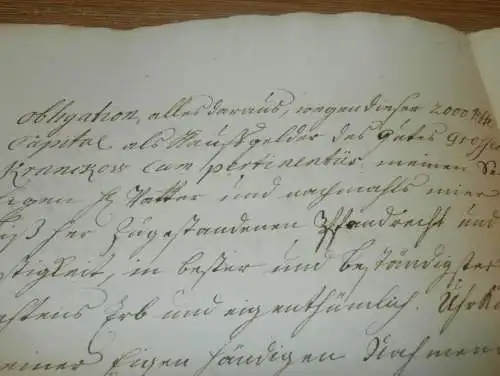 obligation, alles daraus, wegen dieser 2000 Rthlr
Capital als Kauffgelder des Gutes Grossen
Kranckow cum pertinentiis, meinen Se
ligen H. Vatter und nachmahls mier
biß her Zugestandenen Pfandrecht und
stigkeit, in bester und beständigster
estens Erb und eigenthümlich. Uhrk
einer Eigen händigen Nahmens